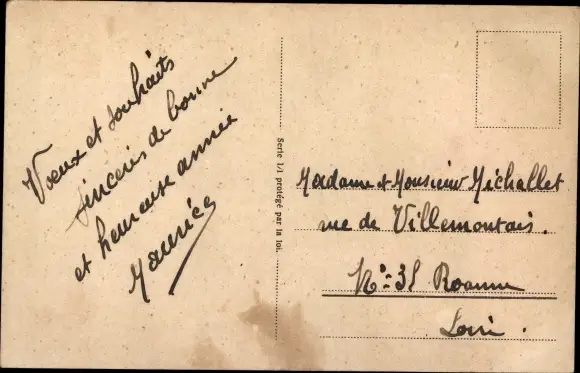 Voeux et souhaits
sincères de bonne
et heureuse année
Maurice
Serie 1/1 protégé par la loi.
Madame et Monsieur Michallet
rue de Villemontais.
Roanne
Loire.